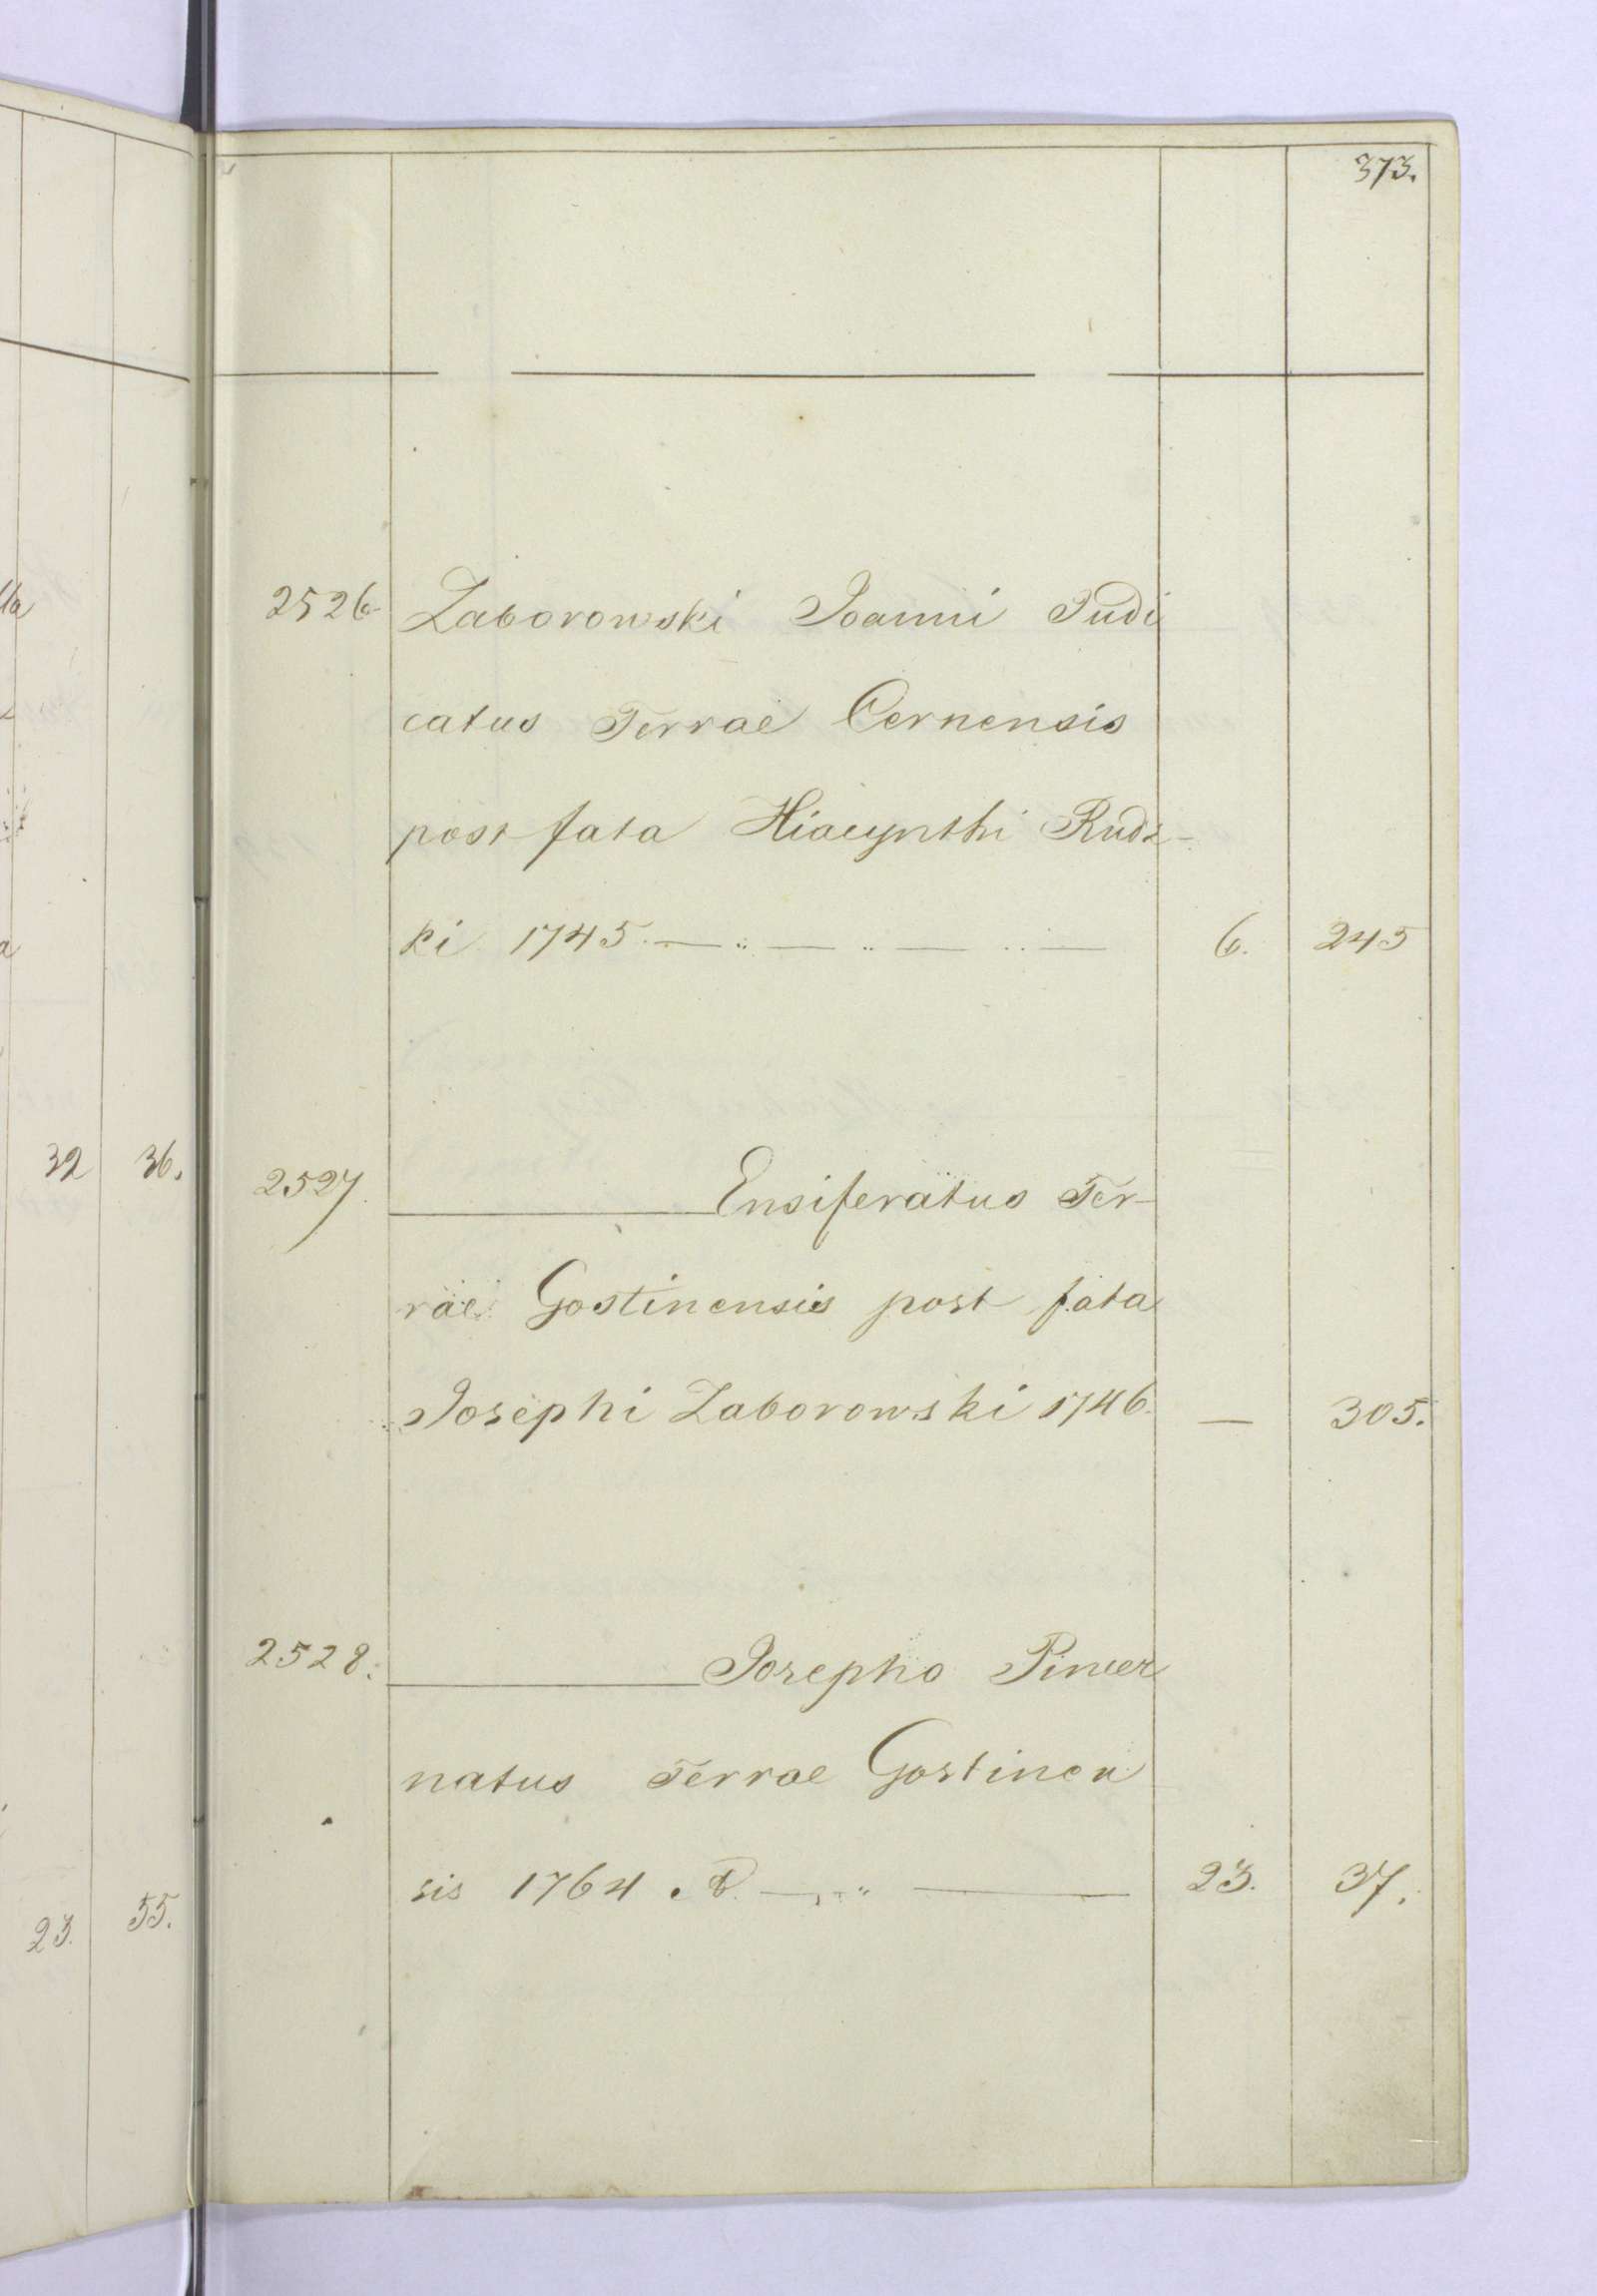 373.
2526 Zaborowski Joanni Judi
catus Terrae Cernensis
post fata Hiacynthi Rudz-
ki 1745. 6. 245
2527. Ensiferatus Ter-
rae Gostinensis post fata
Josephi Zaborowski 1746. — 305.
2528. Josepho Pincer
natus Terrae Gostinen
sis 1764. 23. 37.
lla
a
32 36.
23. 55.